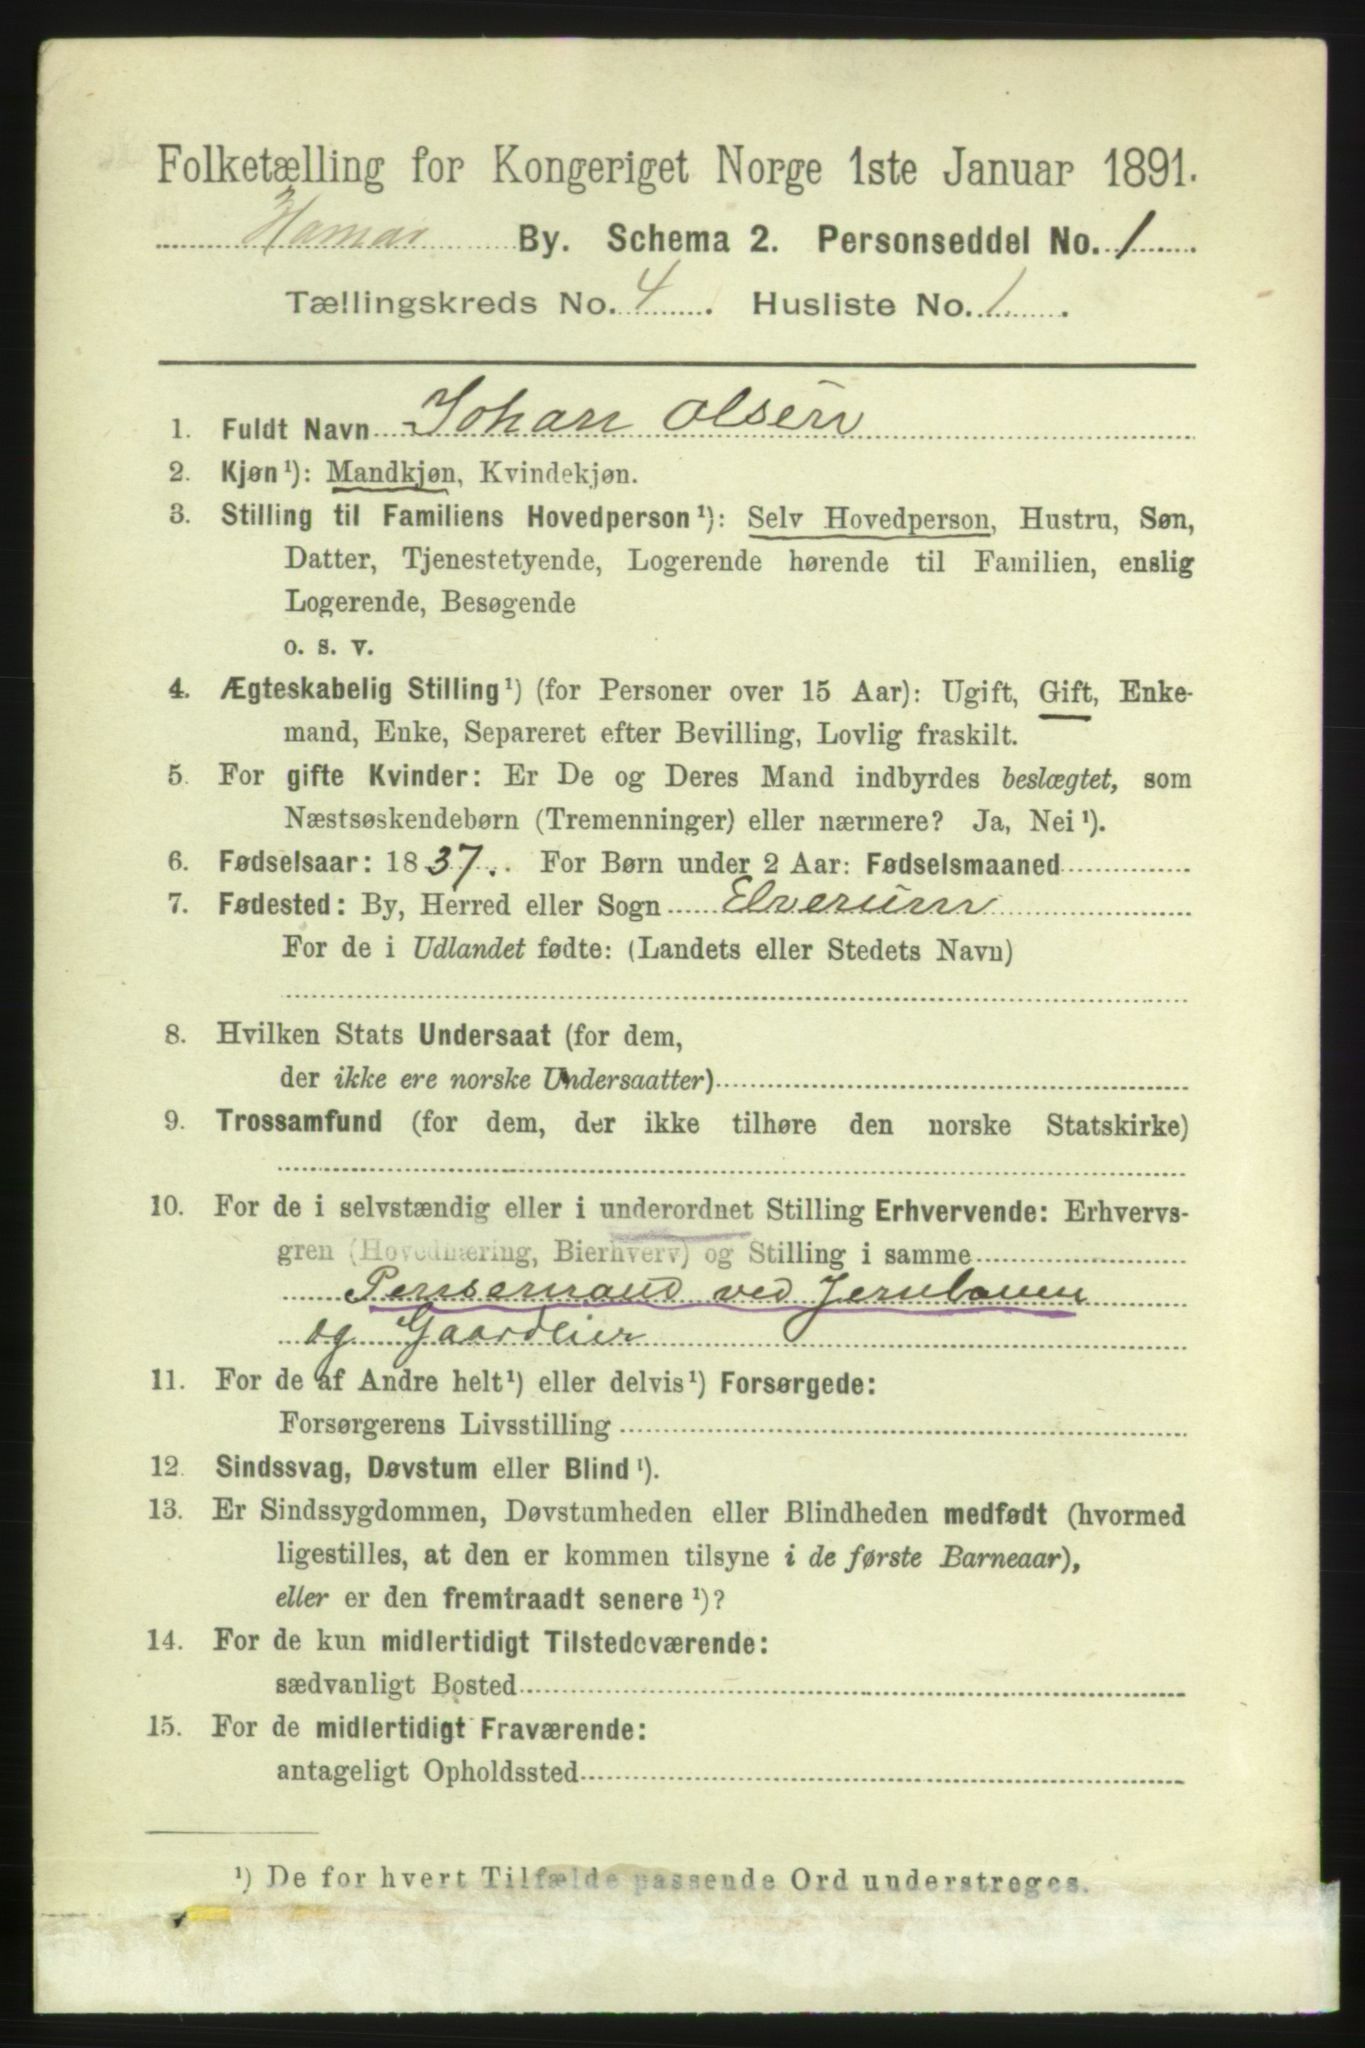 Folketælling for Kongeriget Norge 1ste Januar 1891.
Hamar By. Schema 2. Personseddel No. 1
Tællingskreds No. 4. Husliste No. 1.
1. Fuldt Navn Johan Olsen
2. Kjøn¹): Mandkjøn, Kvindekjøn.
3. Stilling til Familiens Hovedperson¹): Selv Hovedperson, Hustru, Søn,
Datter, Tjenestetyende, Logerende hørende til Familien, enslig
Logerende, Besøgende
o. s. v.
4. Ægteskabelig Stilling¹) (for Personer over 15 Aar): Ugift, Gift, Enke-
mand, Enke, Separeret efter Bevilling, Lovlig fraskilt.
5. For gifte Kvinder: Er De og Deres Mand indbyrdes beslægtet, som
Næstsøskendebørn (Tremenninger) eller nærmere? Ja, Nei¹).
6. Fødselsaar: 1837. For Børn under 2 Aar: Fødselsmaaned
7. Fødested: By, Herred eller Sogn Elverum
For de i Udlandet fødte: (Landets eller Stedets Navn)
8. Hvilken Stats Undersaat (for dem,
der ikke ere norske Undersaatter)
9. Trossamfund (for dem, der ikke tilhøre den norske Statskirke)
10. For de i selvstændig eller i underordnet Stilling Erhvervende: Erhvervs-
gren (Hovednæring, Bierhverv) og Stilling i samme
Pensemand ved Jernbanen
og Gaardeier
11. For de af Andre helt¹) eller delvis¹) Forsørgede:
Forsørgerens Livsstilling
12. Sindssvag, Døvstum eller Blind¹).
13. Er Sindssygdommen, Døvstumheden eller Blindheden medfødt (hvormed
ligestilles, at den er kommen tilsyne i de første Barneaar),
eller er den fremtraadt senere¹)?
14. For de kun midlertidigt Tilstedeværende:
sædvanligt Bosted
15. For de midlertidigt Fraværende:
antageligt Opholdssted
¹) De for hvert Tilfælde passende Ord understreges.